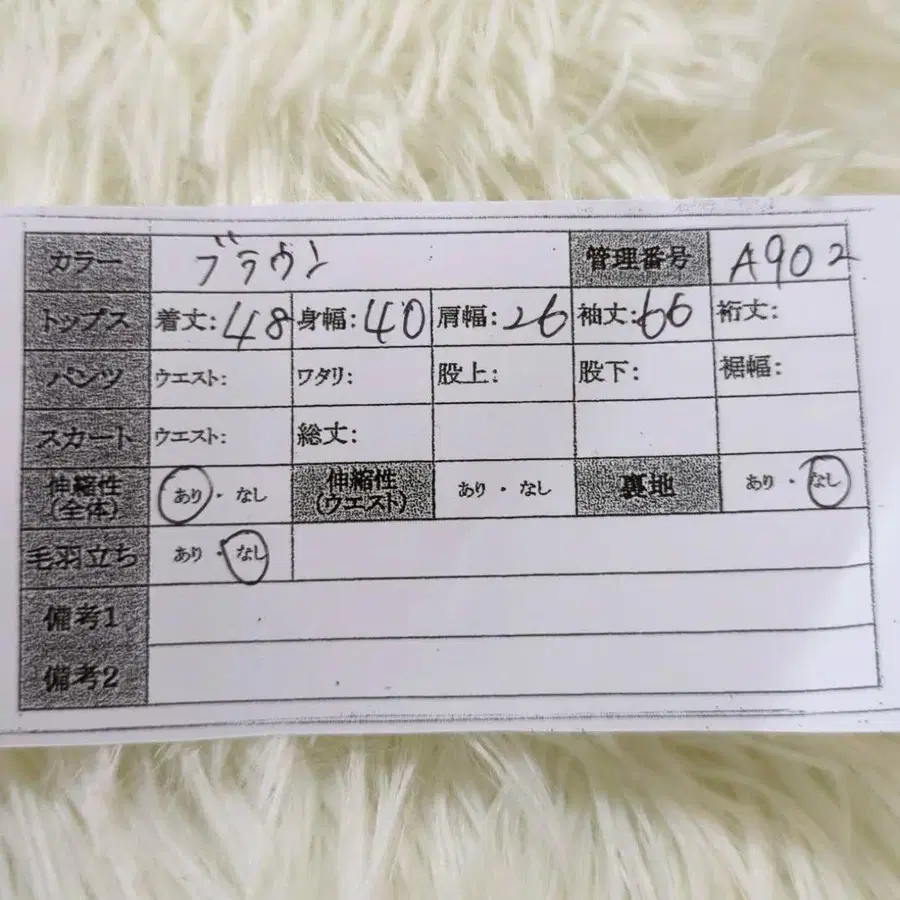 カラー ブラウン 管理番号 A902
トップス 着丈:48 身幅:40 肩幅:26 袖丈:66 裄丈:
パンツ ウエスト: ワタリ: 股上: 股下: 裾幅:
スカート ウエスト: 総丈:
伸縮性(全体) あり・なし 伸縮性(ウエスト) あり・なし 裏地 あり・なし
毛羽立ち あり・なし
備考1
備考2